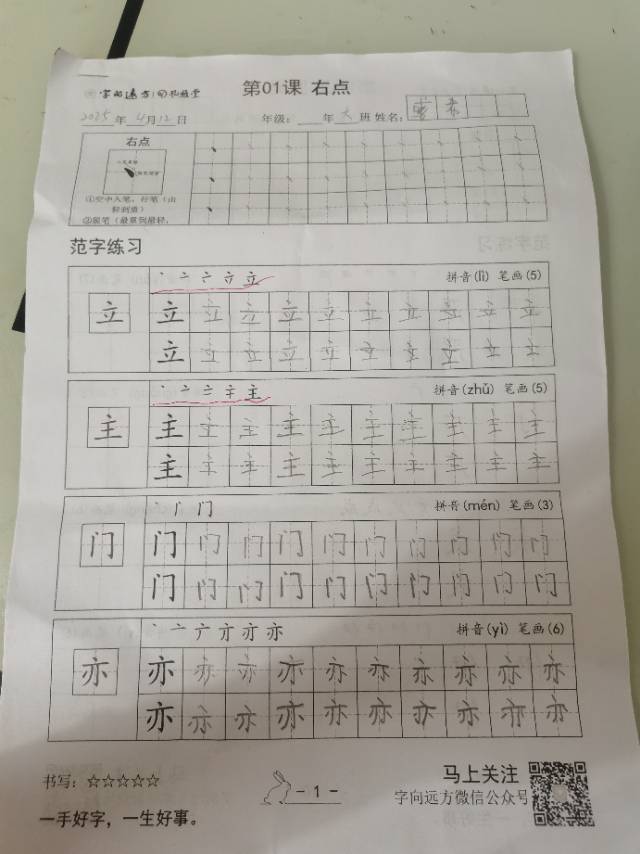 第01课 右点
2025年4月12日 年级：年大班 姓名：
右点
①空中入笔，行笔（由
轻到重）
②顿笔（最重到最轻，
范字练习
丶 亠 亠 立 立 拼音(lì) 笔画(5)
立 立 立 立 立 立 立 立 立 立 立
立 立 立 立 立 立 立 立 立 立
丶 亠 二 主 主 拼音(zhǔ) 笔画(5)
主 主 主 主 主 主 主 主 主 主 主
主 主 主 主 主 主 主 主 主 主
丶 门 门 拼音(mén) 笔画(3)
门 门 门 门 门 门 门 门 门 门 门
门 门 门 门 门 门 门 门 门 门
丶 亠 亣 亓 亦 亦 拼音(yì) 笔画(6)
亦 亦 亦 亦 亦 亦 亦 亦 亦 亦 亦
亦 亦 亦 亦 亦 亦 亦 亦 亦 亦
书写：☆☆☆☆☆
一手好字，一生好事。
- 1 -
马上关注
字向远方微信公众号